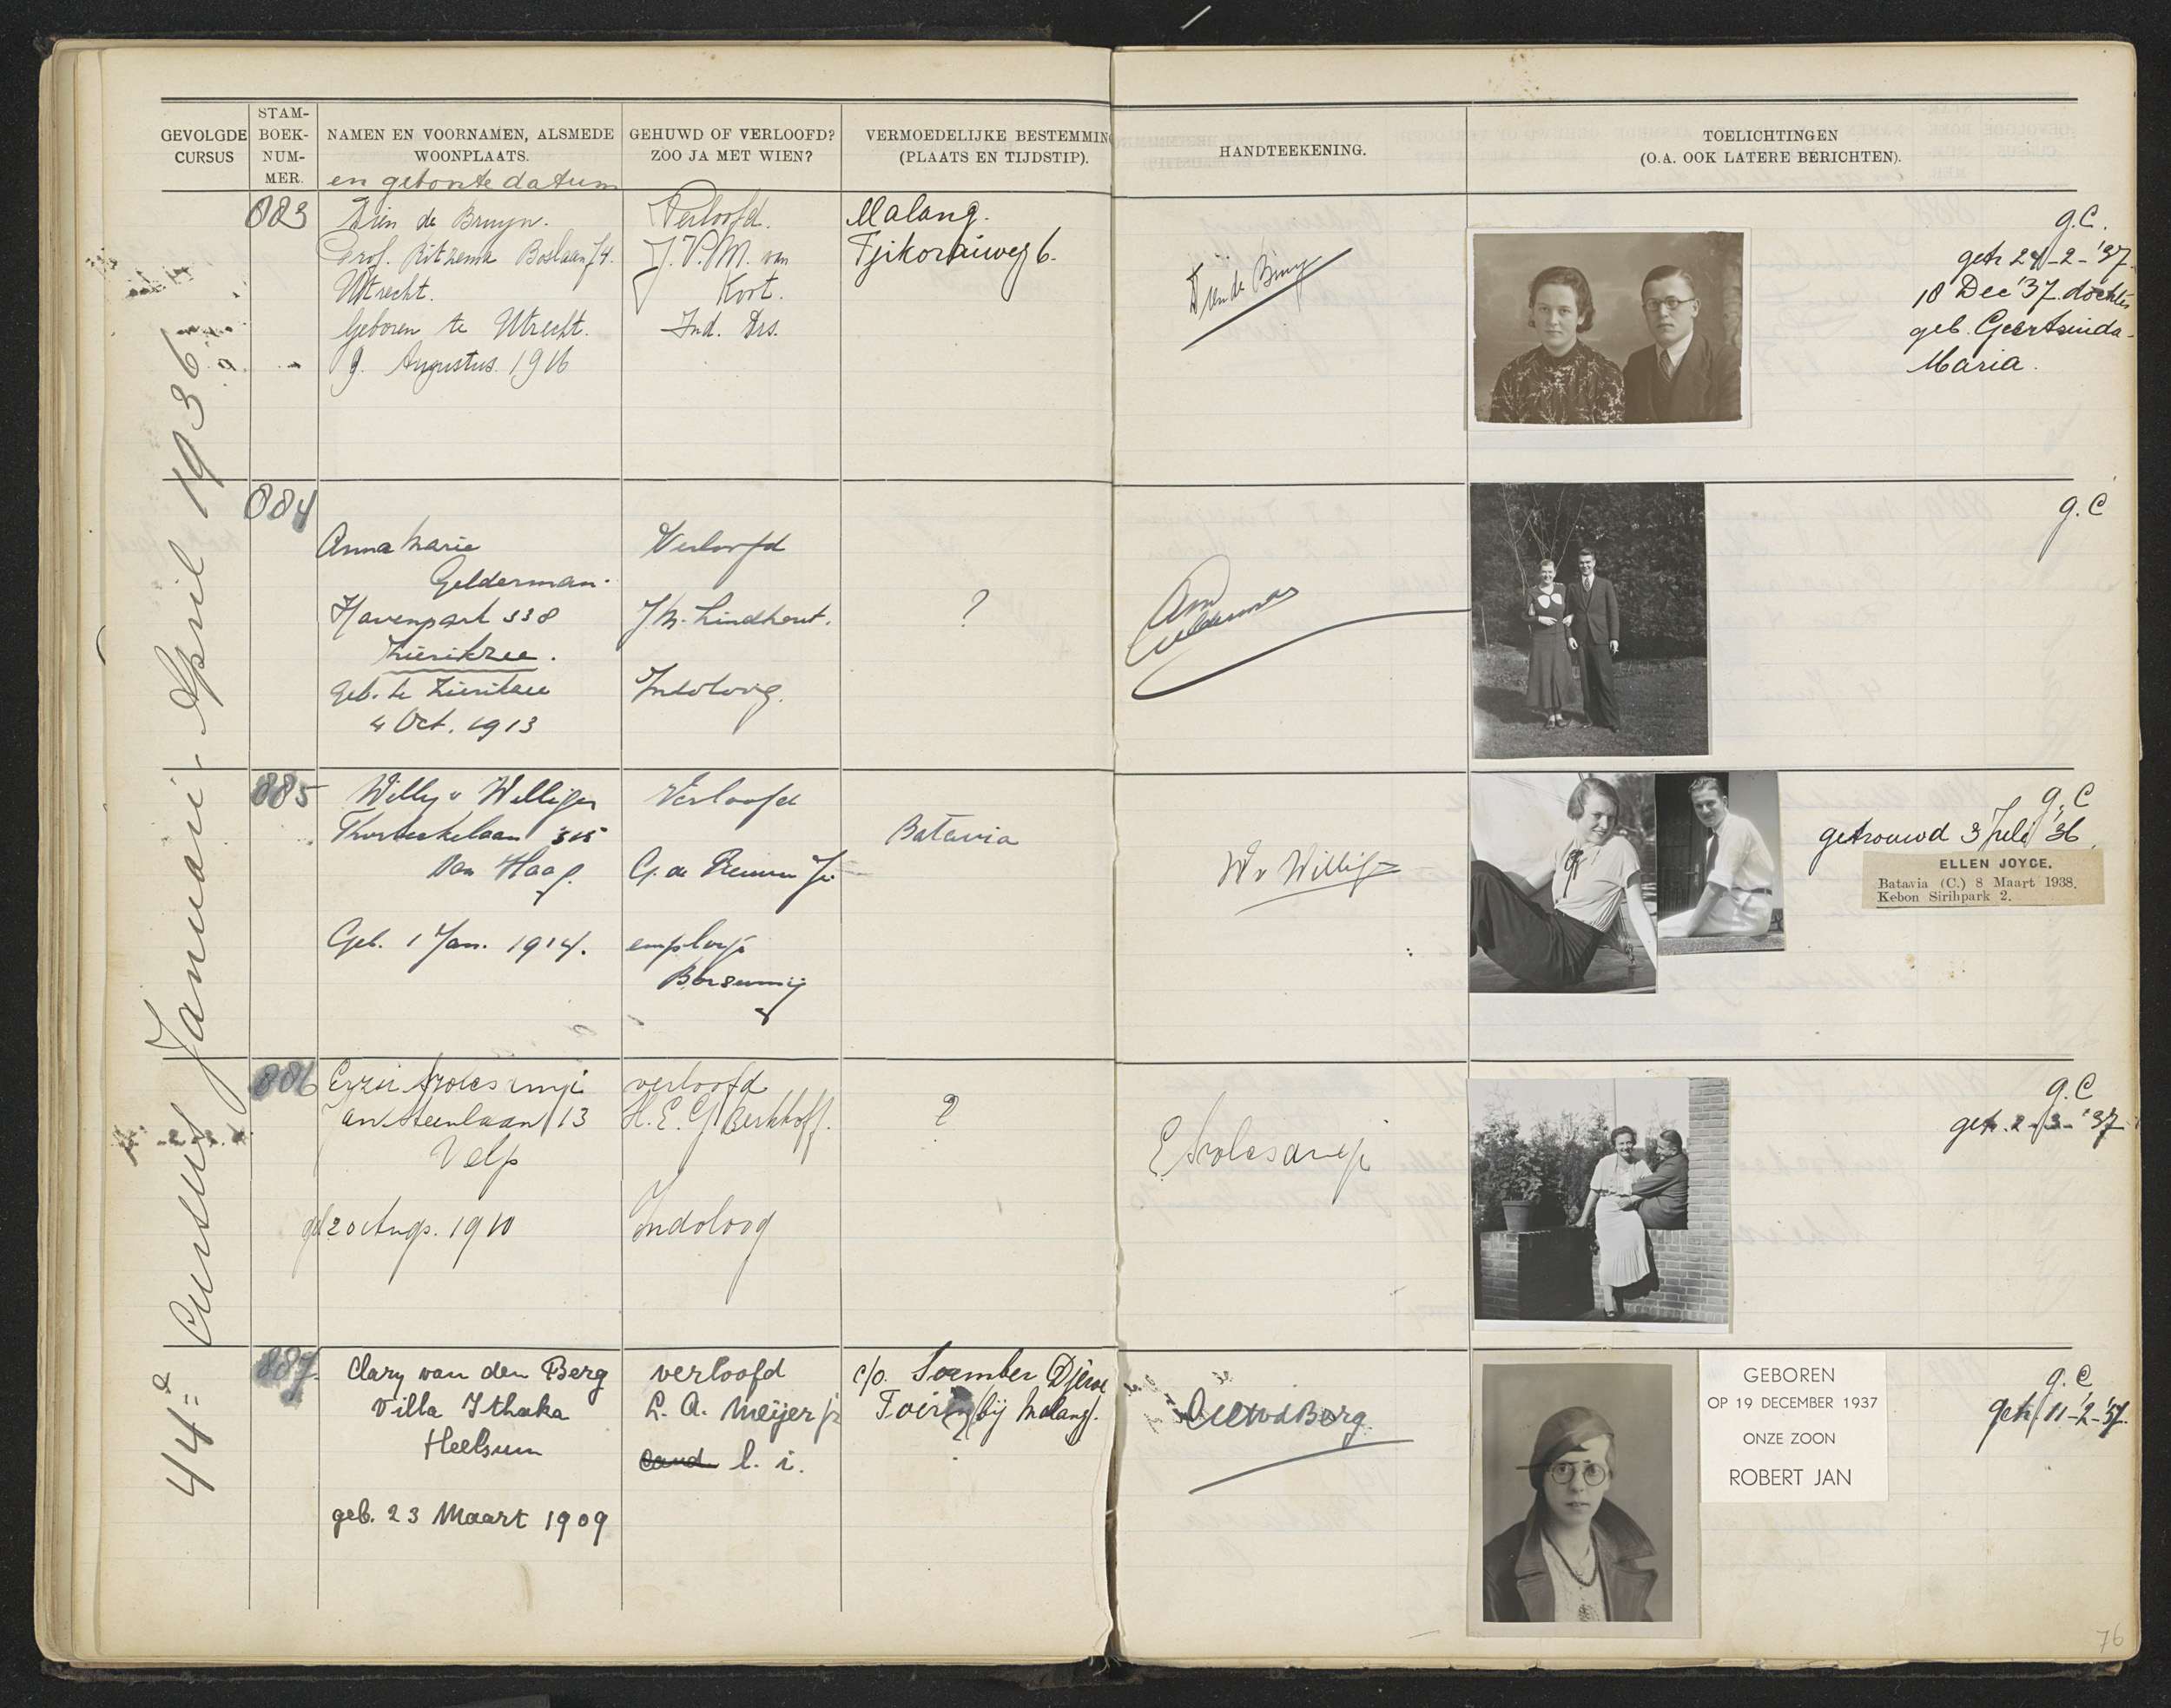 GEVOLGDE CURSUS
STAM-BOEK-NUM-MER.
NAMEN EN VOORNAMEN, ALSMEDE WOONPLAATS.
en geboorte datum
GEHUWD OF VERLOOFD? ZOO JA MET WIEN?
VERMOEDELIJKE BESTEMMING (PLAATS EN TIJDSTIP).
HANDTEEKENING.
TOELICHTINGEN
(O.A. OOK LATERE BERICHTEN).
44e Cursus Januari - April 1936
883
Dien de Bruyn.
Prof. Ritzema Boslaan 74.
Utrecht.
Geboren te Utrecht.
9 Augustus 1916
Verloofd.
J.V.M. van
Ind. Drs.
Malang.
6.
Dien de Bruyn
g.C.
getr 24-2-'37.
18 Dec '37 dochter
geb.
Maria.
884
Anna Marie
Gelderman.
Havenpark 338
Zierikzee.
geb. te Zierikzee
4 Oct. 1913
Verloofd
Lindhout.
Indoloog.
?
Gelderman
g.C
885
Willy v Willigen
Thorbeckelaan 315
Den Haag.
Geb. 1 Jan. 1914.
Verloofd
employé
Borsumij
Batavia
W v Willigen
g.C
getrouwd 3 Juli '36
ELLEN JOYCE.
Batavia (C.) 8 Maart 1938.
Kebon Sirihpark 2.
886
Jan Steenlaan 13
Velp
geb 20 Aug. 1910
verloofd
H.E.G. Berkhoff.
Indoloog
?
g.C
getr. 2-3-'37
887.
Clary van den Berg
Villa Ithaka
Heelsum
geb. 23 Maart 1909
verloofd
L. A. Meijer jr
cand l. i.
c/o. Soember
bij Malang.
vd Berg.
GEBOREN
OP 19 DECEMBER 1937
ONZE ZOON
ROBERT JAN
g.C
getr. 11-2-'37.
76